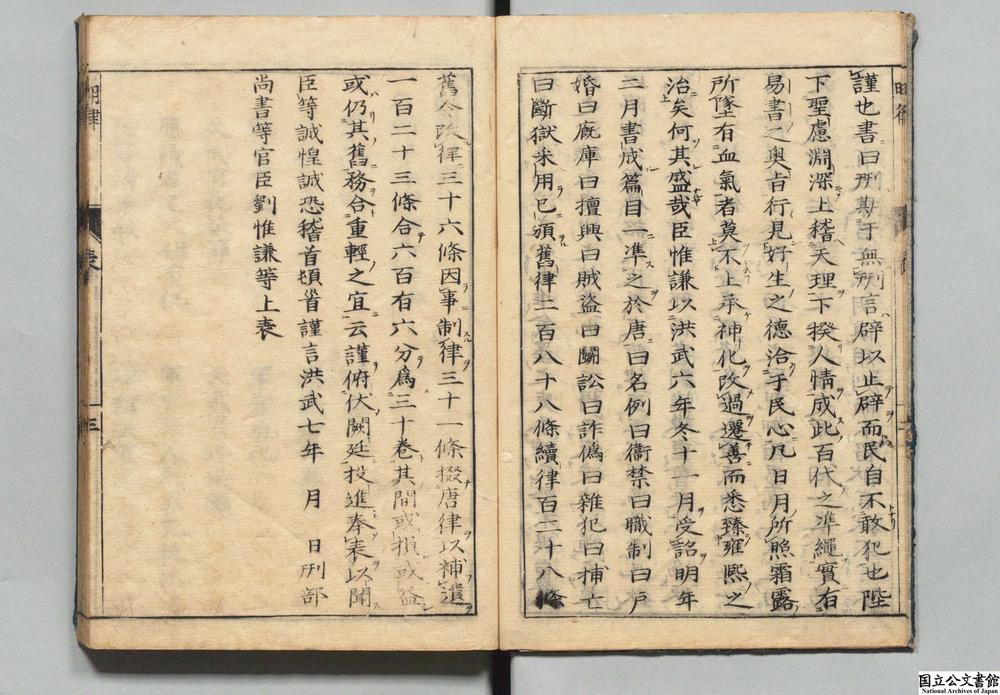 謹也書曰刑期于無刑言辟以止辟而民自不敢犯也陛
下聖慮淵深上稽天理下揆人情成此百代之準繩實有
易書之奧旨行見好生之德洽于民心凡日月所照霜露
所墜有血氣者莫不上承神化改過遷善而悉臻雍熙之
治矣何其盛哉臣惟謙以洪武六年冬十一月受詔明年
二月書成篇目一準之於唐曰名例曰衞禁曰職制曰戶
婚曰廐庫曰擅興曰賊盜曰鬬訟曰詐僞曰雜犯曰捕亡
曰斷獄采用已頒舊律二百八十八條續律百二十八條
舊令改律三十六條因事制律三十一條掇唐律以補遺
一百二十三條合六百有六分爲三十卷其間或損或益
或仍其舊務合重輕之宜云謹俯伏闕廷投進奉表以聞
臣等誠惶誠恐稽首頓首謹言洪武七年 月 日刑部
尚書等官臣劉惟謙等上表
明律
表
三
国立公文書館
National Archives of Japan